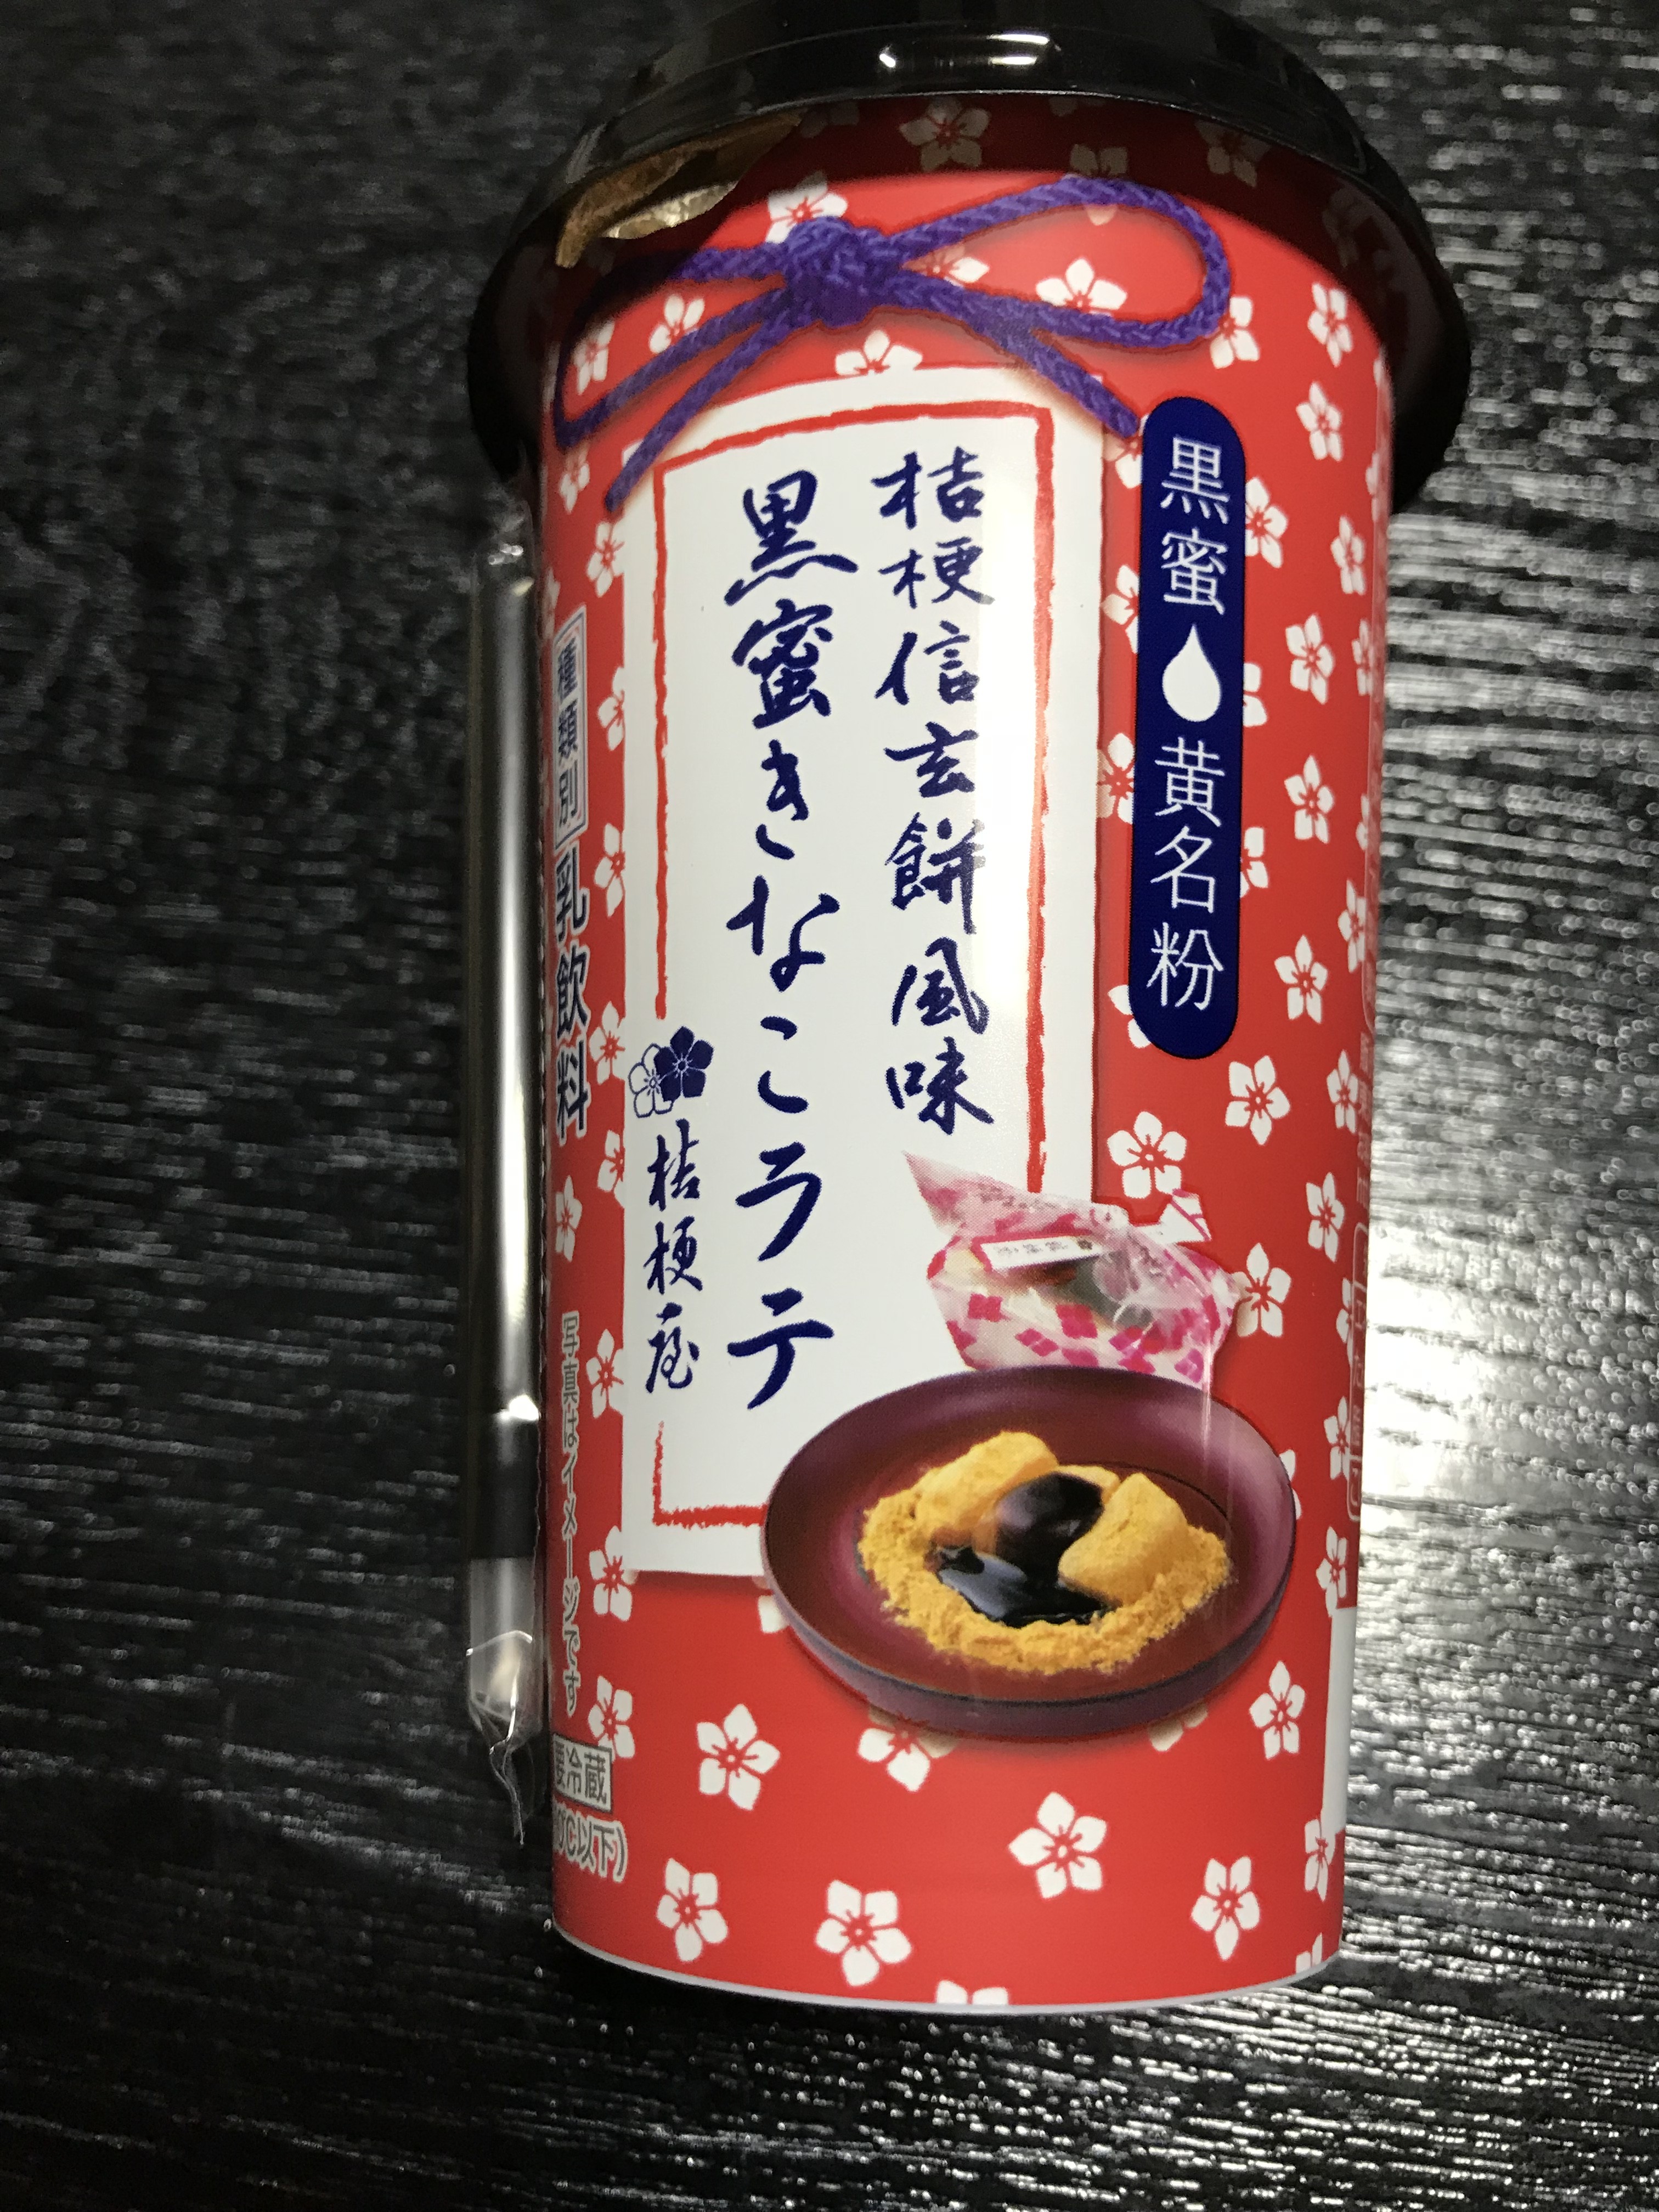 黒蜜 黄名粉
桔梗信玄餅風味
黒蜜きなこラテ
桔梗屋
種類別 乳飲料
写真はイメージです
要冷蔵
℃以下)